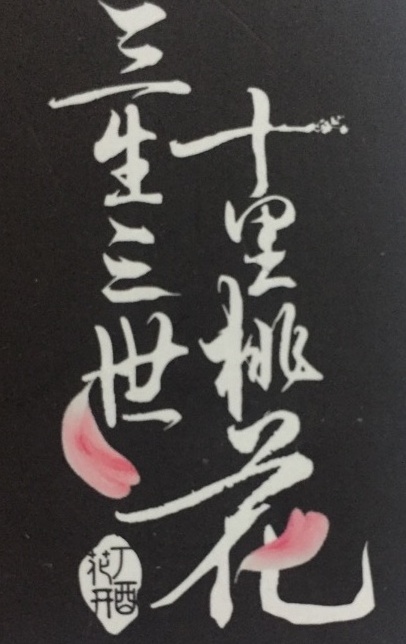 三生三世
十里桃花
丁酉
花